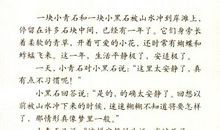 一块小青石和一块小黑石被山水冲到岸滩上，
停留在许多石块中间，已经有一年了。它们身旁长
着柔软的青草，开着可爱的小花，还时常有蝴蝶和
蜻蜓飞来。这一年，生活平静极了，安逸极了。
一天，小青石对小黑石说：“这里太安静了，真
有点不习惯！”
小黑石回答说：“是的，的确太安静了，回想以
前被山水冲下来的时候，速速翻翻不知道将要怎样
了，那情形真像是做梦一般。”